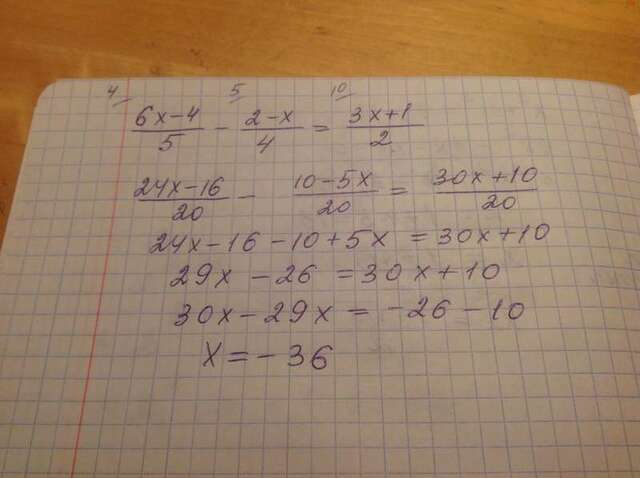 4 5 10
(6x-4)/5 - (2-x)/4 = (3x+1)/2
(24x-16)/20 - (10-5x)/20 = (30x+10)/20
24x-16-10+5x = 30x+10
29x-26 = 30x+10
30x-29x = -26-10
x=-36